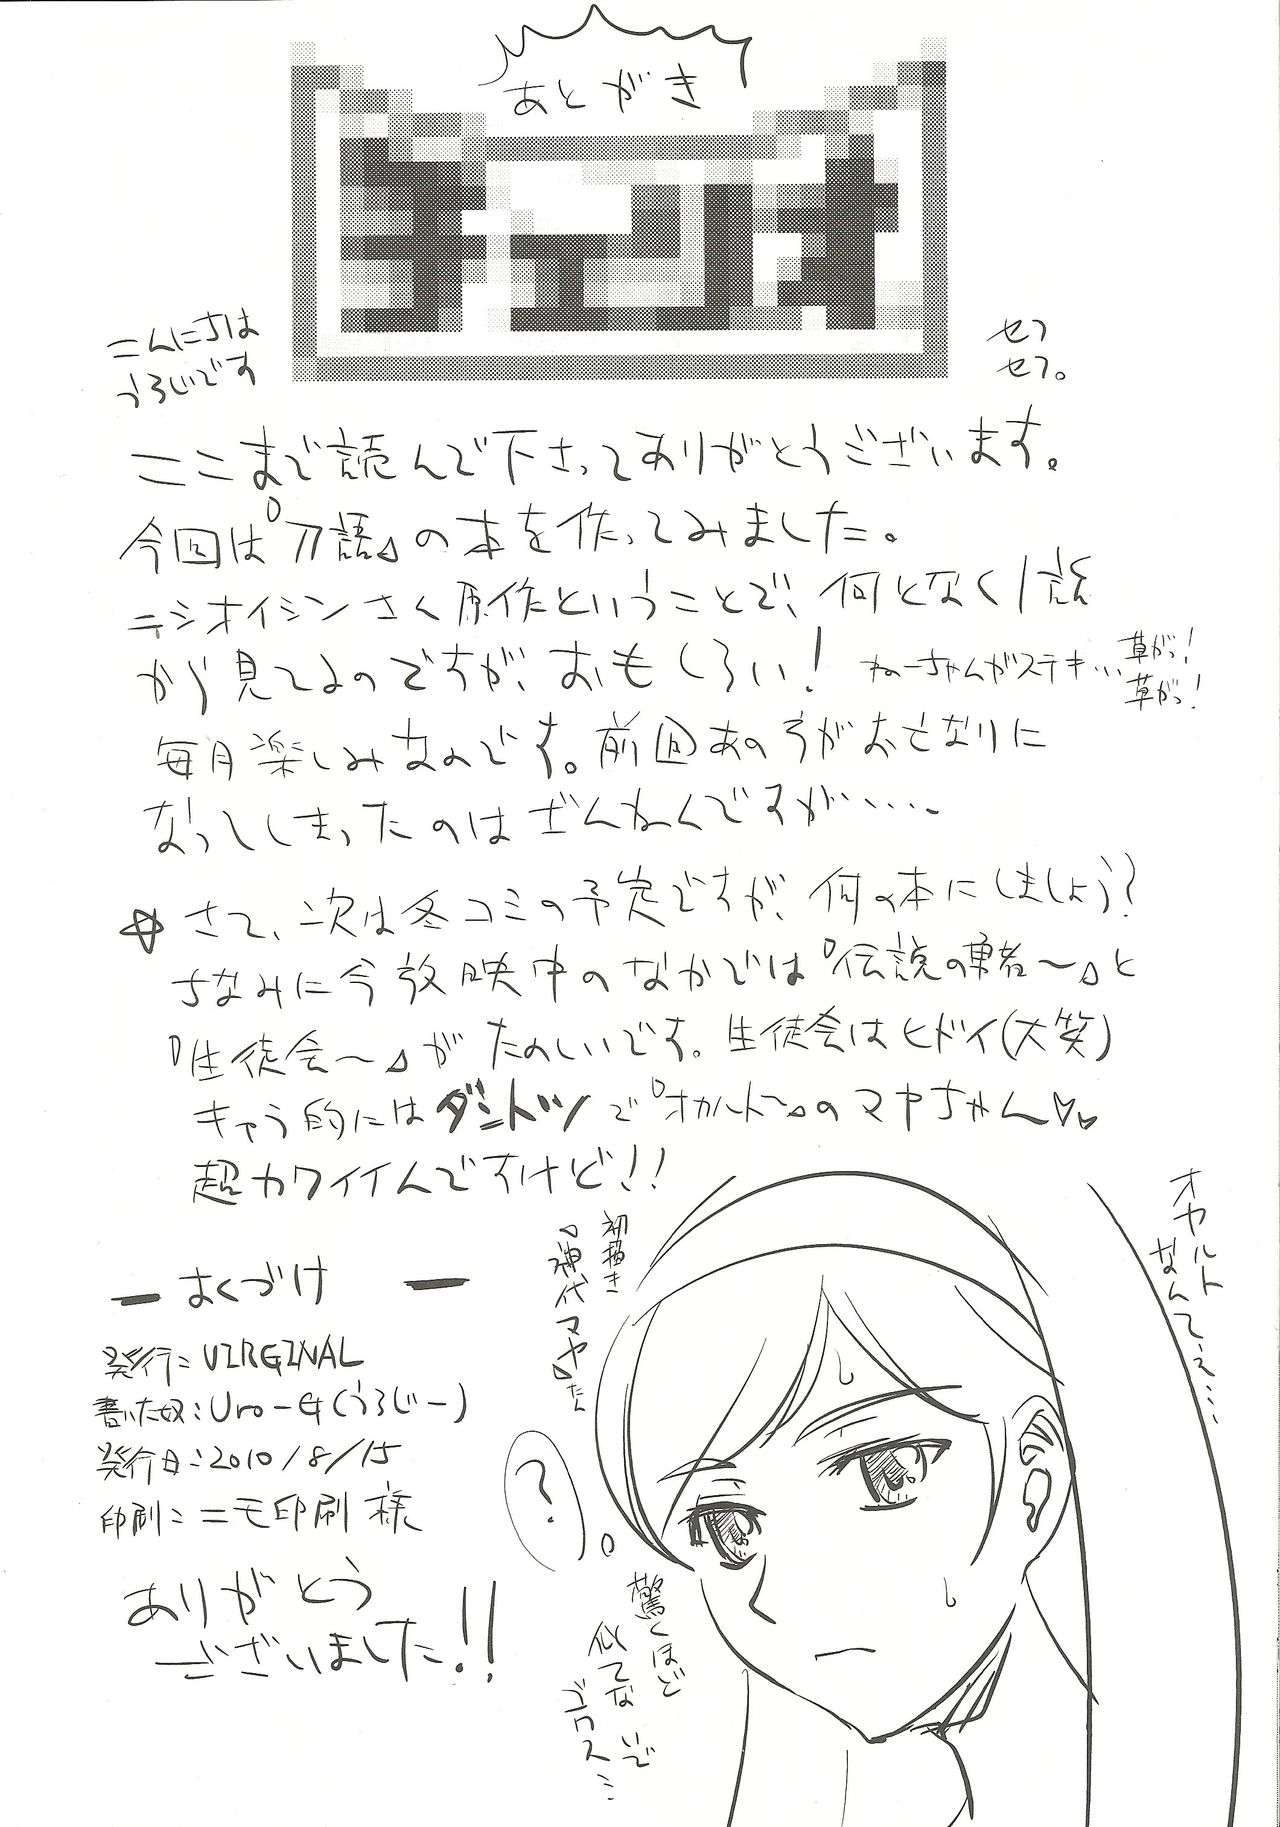 あとがき
こんにちは
うろじです
セフ
セフ。
ここまで読んで下さってありがとうございます。
今回は『刀語』の本を作ってみました。
ニシオイシンさく原作ということで、何となく1話
から見てるのですが、おもしろい!
ねーちゃんがステキ…草がっ!
草がっ!
毎月楽しみなのです。前回あの方がおなくなりに
なってしまったのはざんねんですが・・・・。
☆さて、次は冬コミの予定ですが、何の本にしましょう?
ちなみに今放映中のなかでは『伝説の勇者〜』と
『生徒会〜』がたのしいです。生徒会はヒドイ(大笑)
キャラ的にはダントツで『オカルト〜』のマヤちゃん♡♡
超カワイイんですけど!!
オカルト
なんてぇ…
初描き
『神代マヤ』たん
ー おくづけ ー
発行:VIRGINAL
書いた奴:Uro-G(うろじー)
発行日:2010/8/15
印刷:ニモ印刷 様
?
驚くほど
似てないで
ゴワス…
ありがとう
ございました!!